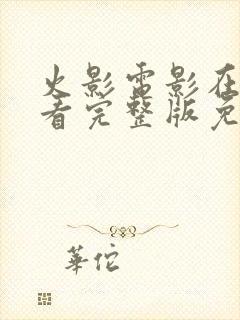 火影雷影在
看完整版免
華佗